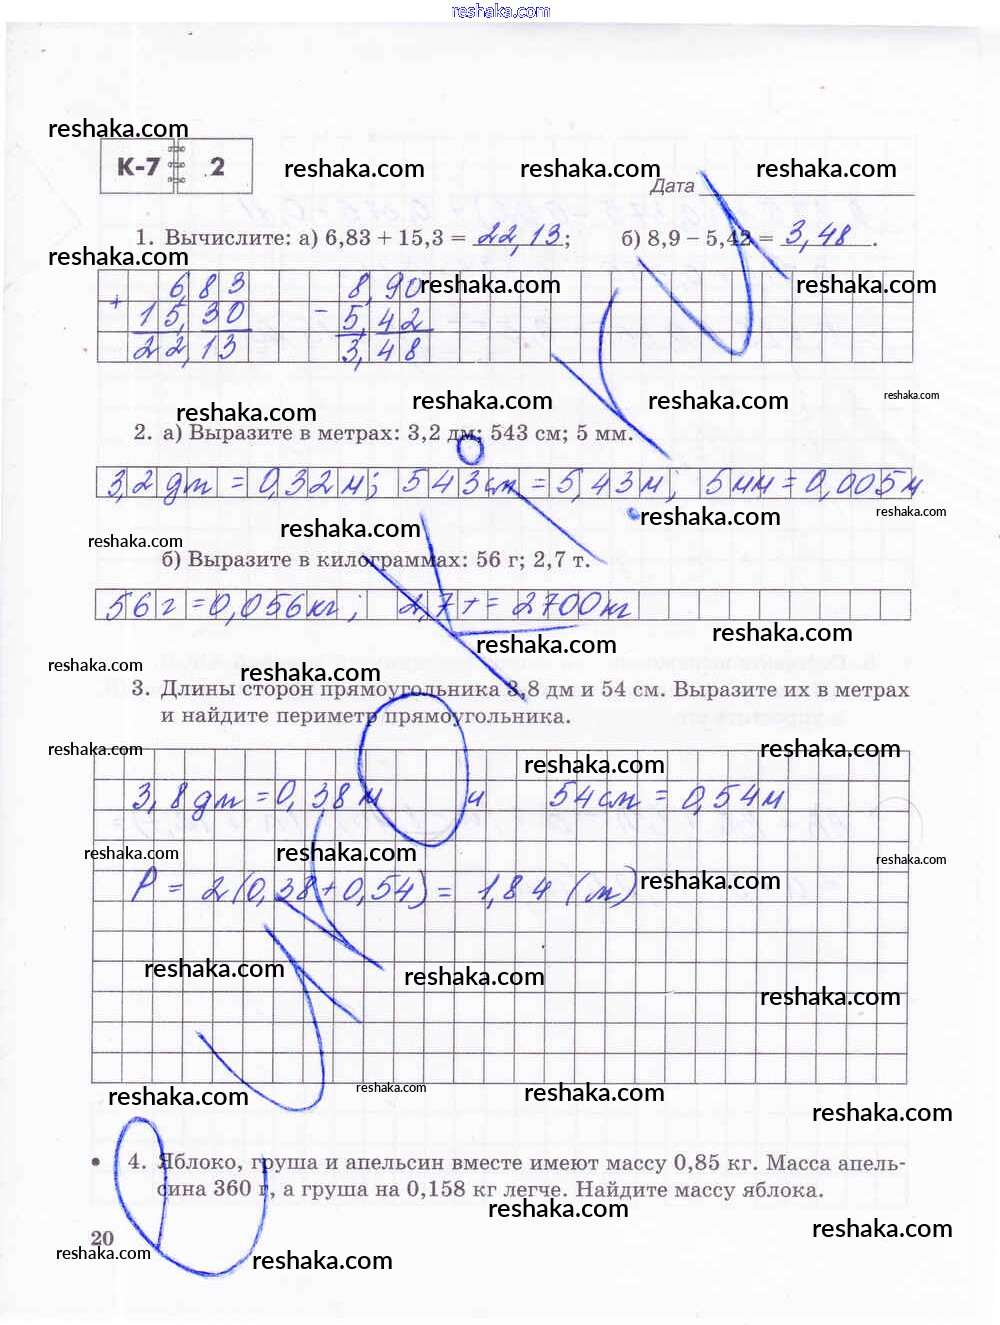 reshaka.com
reshaka.com
К-7 2
reshaka.com reshaka.com reshaka.com
Дата
1. Вычислите: а) 6,83 + 15,3 = 22,13; б) 8,9 – 5,42 = 3,48.
reshaka.com
6,83 8,90
reshaka.com reshaka.com
+ 15,30 – 5,42
22,13 3,48
reshaka.com reshaka.com reshaka.com reshaka.com
2. а) Выразите в метрах: 3,2 дм; 543 см; 5 мм.
3,2 дм = 0,32 м; 543 см = 5,43 м; 5 мм = 0,005 м
reshaka.com reshaka.com reshaka.com reshaka.com
б) Выразите в килограммах: 56 г; 2,7 т.
56 г = 0,056 кг; 2,7 т = 2700 кг
reshaka.com reshaka.com
reshaka.com reshaka.com
3. Длины сторон прямоугольника 3,8 дм и 54 см. Выразите их в метрах
и найдите периметр прямоугольника.
reshaka.com reshaka.com reshaka.com
3,8 дм = 0,38 м и 54 см = 0,54 м
reshaka.com reshaka.com reshaka.com
P = 2(0,38 + 0,54) = 1,84 (м)
reshaka.com
reshaka.com reshaka.com reshaka.com
reshaka.com reshaka.com reshaka.com reshaka.com
• 4. Яблоко, груша и апельсин вместе имеют массу 0,85 кг. Масса апель-
сина 360 г, а груша на 0,158 кг легче. Найдите массу яблока.
reshaka.com reshaka.com
20
reshaka.com reshaka.com